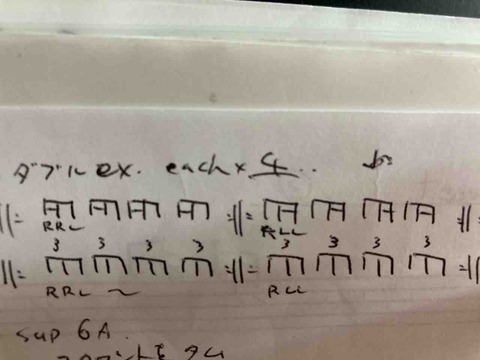 ダブル ex. each x 4..
RRL RLL
3 3 3 3 3 3 3 3
RRL ~ RLL
sup 6A.